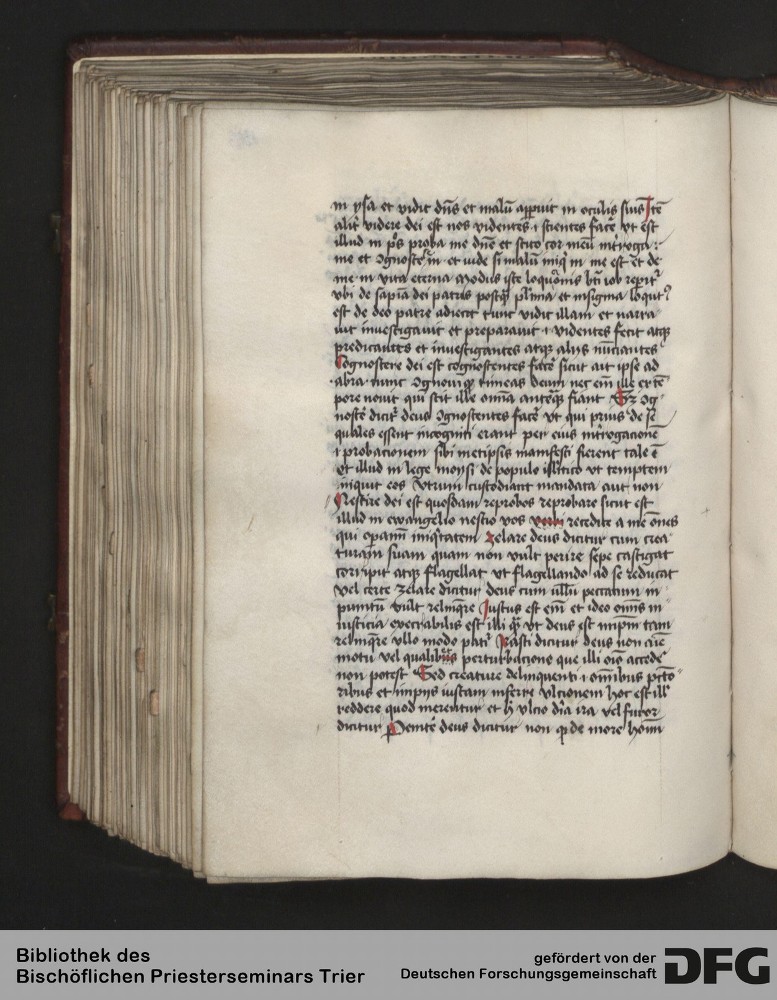 in ysa et vidit dn̄s et malū apparuit in oculis suis Itē
alit͛ videre dei est nos videntes .i. scientes fac͛e vt est
illud in ps̄ proba me dn̄e et scito cor meū int͛roga
me et ꝯgnosce et vide si in me est et de
me in vita eterna Modus iste bt̄i iob
vbi de sapīa dei patris postꝙ̄ et
est de deo patre adiecit tunc vidit illam et narra
uit inuestigauit et preparauit .i. videntes fecit atqꝫ
predicantes et inuestigantes atqꝫ alijs nunciantes
Cognoscere dei est cognoscentes fac͛e sicut ait ipse ad
abrā nunc ꝯgnoui qꝫ timeas deum nec em̄ ille ex tē
pore nouit qui scit ille om̄ia anteqꝫ fiant Sꝫ ꝯg
nosce͛ dicit͛ deus ꝯgnoscentes fac͛e vt qui prius de se
quales essent incogniti erant per eius int͛rogacionē
.i. probacionem sibi metipsis manifesti fierent tale ē
et illud in lege moysi de populo isr̄litico vt temptem
inquit eos vtrum custodiant mandata aut non
Nescire dei est quosdam reprobos reprobare sicut est
illud in ewangelio nescio vos recedite a me om̄es
qui oꝑamī iniq͛tatem Zelare deus dicitur cum crea
turam suam quam non vult perire sepe castigat
corripit atqꝫ flagellat vt flagellando ad se reducat
vel certe zelare dicitur deus cum ullū peccatum in
punitū vult relinq͛re Iustus est em̄ et ideo om̄is in
iusticia execrabilis est illi qꝫ vt deus est
relinq͛re vllo modo pati͛ Irasci dicitur deus non
motu vel qualibus perturbacione que illi accede͛
non potest Sed creature delinquenti .i. om̄ibus pctō
ribus et impijs iustam inferre vlcionem hoc est ill͛
reddere quod merentur et h̄ vlcio dīa ira vel furor
dicitur Penite͛ deus dicitur non qꝫ de more homī
Bibliothek des
Bischöflichen Priesterseminars Trier
gefördert von der
Deutschen Forschungsgemeinschaft
DFG